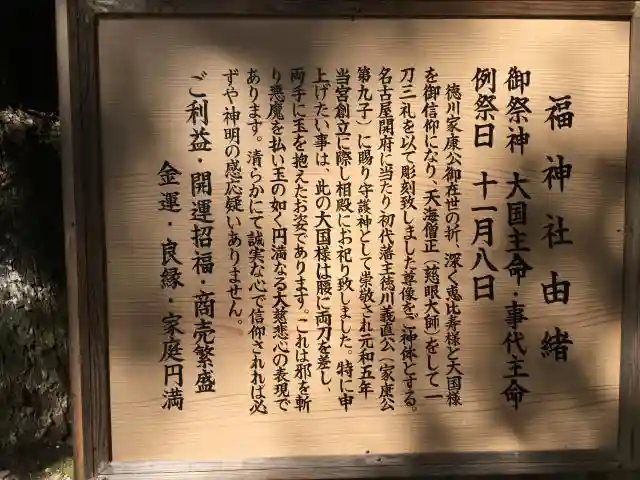 福神社由緒
御祭神　大国主命・事代主命
例祭日　十一月八日
徳川家康公御在世の折、深く恵比寿様と大国様
を御信仰になり、天海僧正（慈眼大師）をして一
刀三礼を以て彫刻致しました尊像をご神体とする。
名古屋開府に当たり初代藩主徳川義直公（家康公
第九子）に賜り守護神として崇敬され元和五年
当宮創立に際し相殿にお祀り致しました。特に申
上げたい事は、此の大国様は腰に両刀を差し、
両手に玉を抱えたお姿であります。これは邪を斬
り悪魔を払い玉の如く円満なる大慈悲心の表現で
あります。清らかにて誠実な心で信仰されれば必
ずや神明の感応疑いありません。
ご利益・開運招福・商売繁盛
金運・良縁・家庭円満